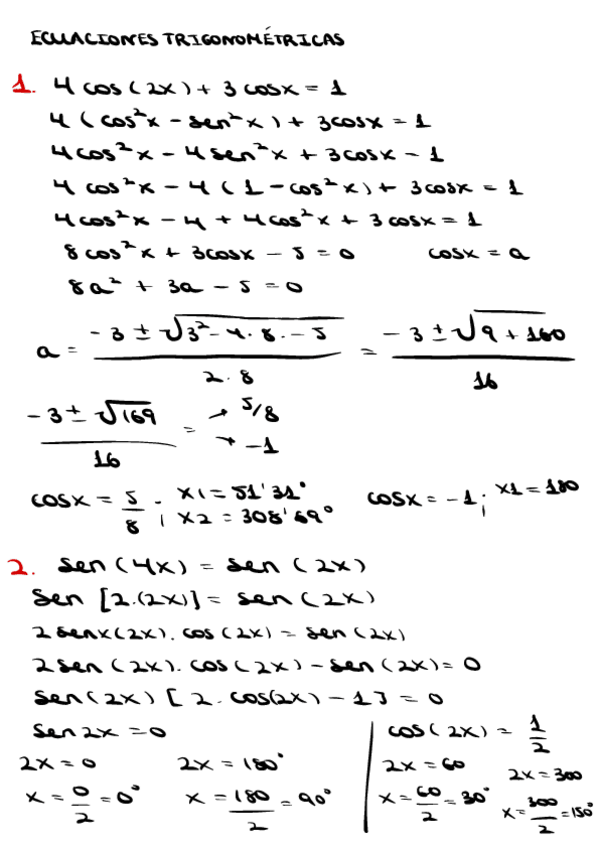 ECUACIONES TRIGONOMÉTRICAS
1. 4 cos(2x) + 3 cosx = 1
4 (cos²x - sen²x) + 3cosx = 1
4cos²x - 4sen²x + 3cosx - 1
4 cos²x - 4 (1 - cos²x) + 3cosx = 1
4cos²x - 4 + 4cos²x + 3cosx = 1
8cos²x + 3cosx - 5 = 0 cosx = a
8a² + 3a - 5 = 0
a = (-3 ± √(3² - 4·8·-5)) / (2·8) = (-3 ± √(9 + 160)) / 16
(-3 ± √169) / 16 = → 5/8 → -1
cosx = 5/8 ; x1 = 51'31° x2 = 308'69° cosx = -1 ; x1 = 180
2. sen(4x) = sen (2x)
Sen [2.(2x)] = sen(2x)
2senx(2x).cos(2x) = sen(2x)
2sen(2x).cos(2x) - sen(2x) = 0
Sen(2x) [2.cos(2x) - 1] = 0
Sen2x = 0 cos(2x) = 1/2
2x = 0 2x = 180° 2x = 60 2x = 300
x = 0/2 = 0° x = 180/2 = 90° x = 60/2 = 30° x = 300/2 = 150°